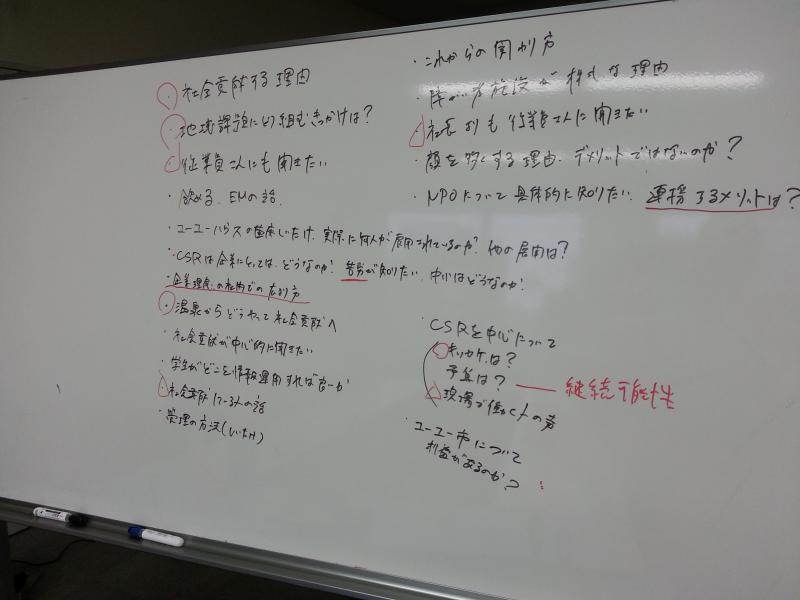 社会貢献する理由
・地域課題にどう組むきっかけは?
従業員さんにも聞きたい
・飲める、EMの話.
・ユーユーハウスの菌床しいたけ、実際に何人が雇用されているのか?他の雇用は?
・CSRは企業にとっては、どうなのか?苦労が知りたい、中小はどうなのか?
・企業理念の社内での広がり方
・温泉からどうやって社会貢献へ
・社会貢献が中心的に聞きたい
・学生がどこを情報運用すれば良いか
・社会貢献している人の話
・管理の方法(しいたけ)
・これからの関わり方
・障がい者施設が株式な理由
・社長よりも従業員さんに聞きたい
・顔を多くする理由. デメリットではないのか?
・NPOについて具体的に知りたい. 連携するメリットは?
・CSRを中心について
キッカケは?
予算は?
継続可能性
・現場で働く人の声
・ユーユー市について
利益があるのか?